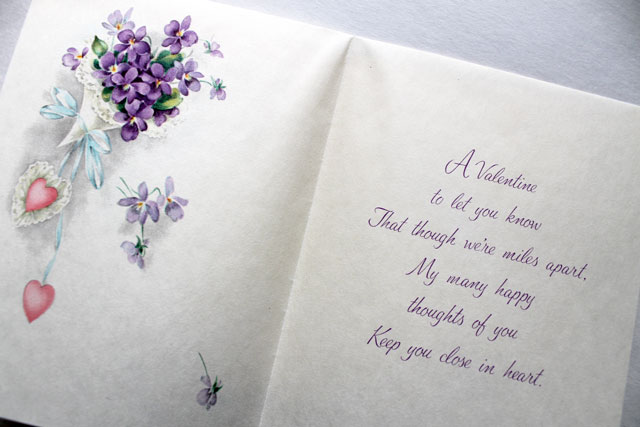 A Valentine
to let you know
That though we're miles apart,
My many happy
thoughts of you
Keep you close in heart.